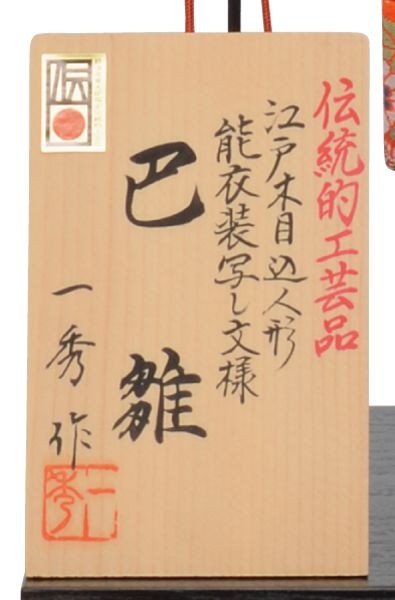 伝統的工芸品
江戸木目込人形
能衣装写し文様
巴雛
一秀作
一秀
伝